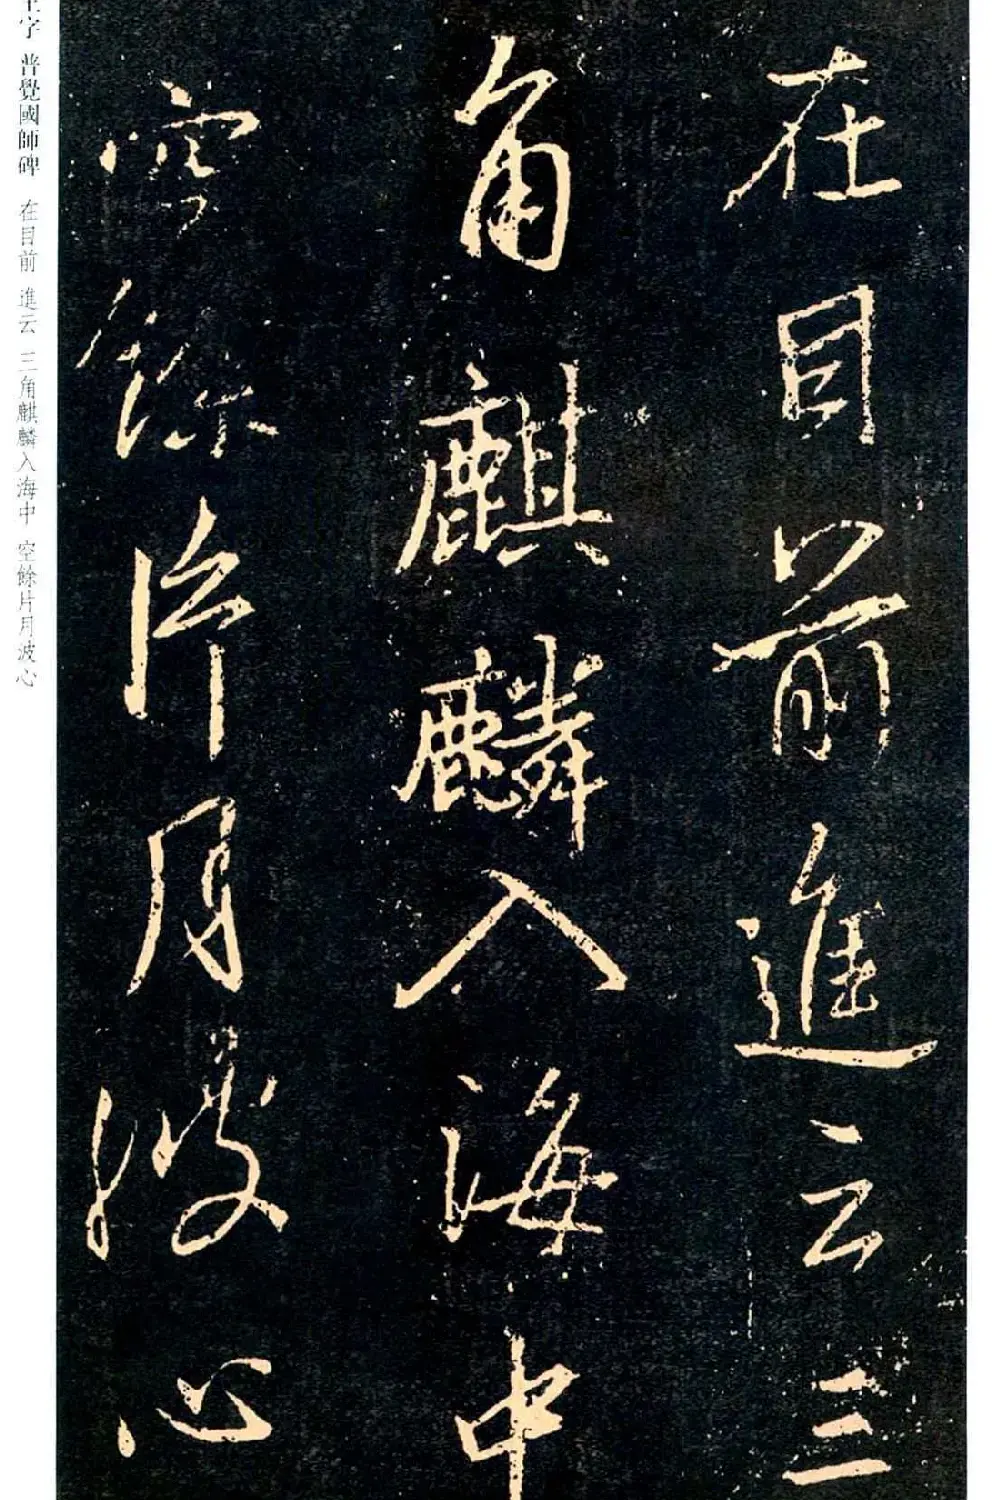 在目前進云三
角麒麟入海中
空餘片月波心
王字 普覺國師碑 在目前 進云 三角麒麟入海中 空餘片月波心